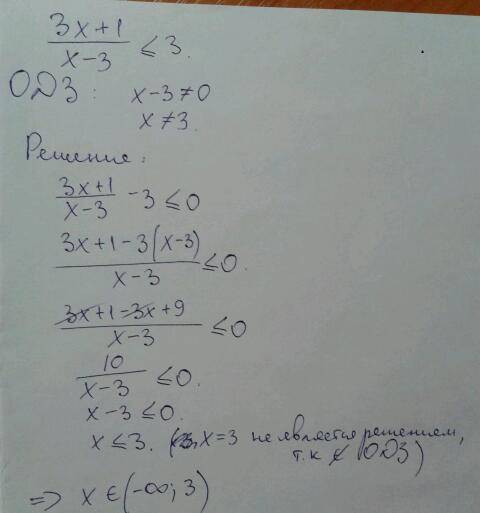 (3x+1)/(x-3) ≤ 3.
ОДЗ: x-3≠0
x≠3.
Решение:
(3x+1)/(x-3) -3 ≤ 0
(3x+1-3(x-3))/(x-3) ≤ 0.
(3x+1-3x+9)/(x-3) ≤ 0
10/(x-3) ≤ 0.
x-3 ≤ 0.
x ≤ 3. ( x=3 не является решением,
т.к ∉ ОДЗ)
=> x ∈ (-∞; 3)